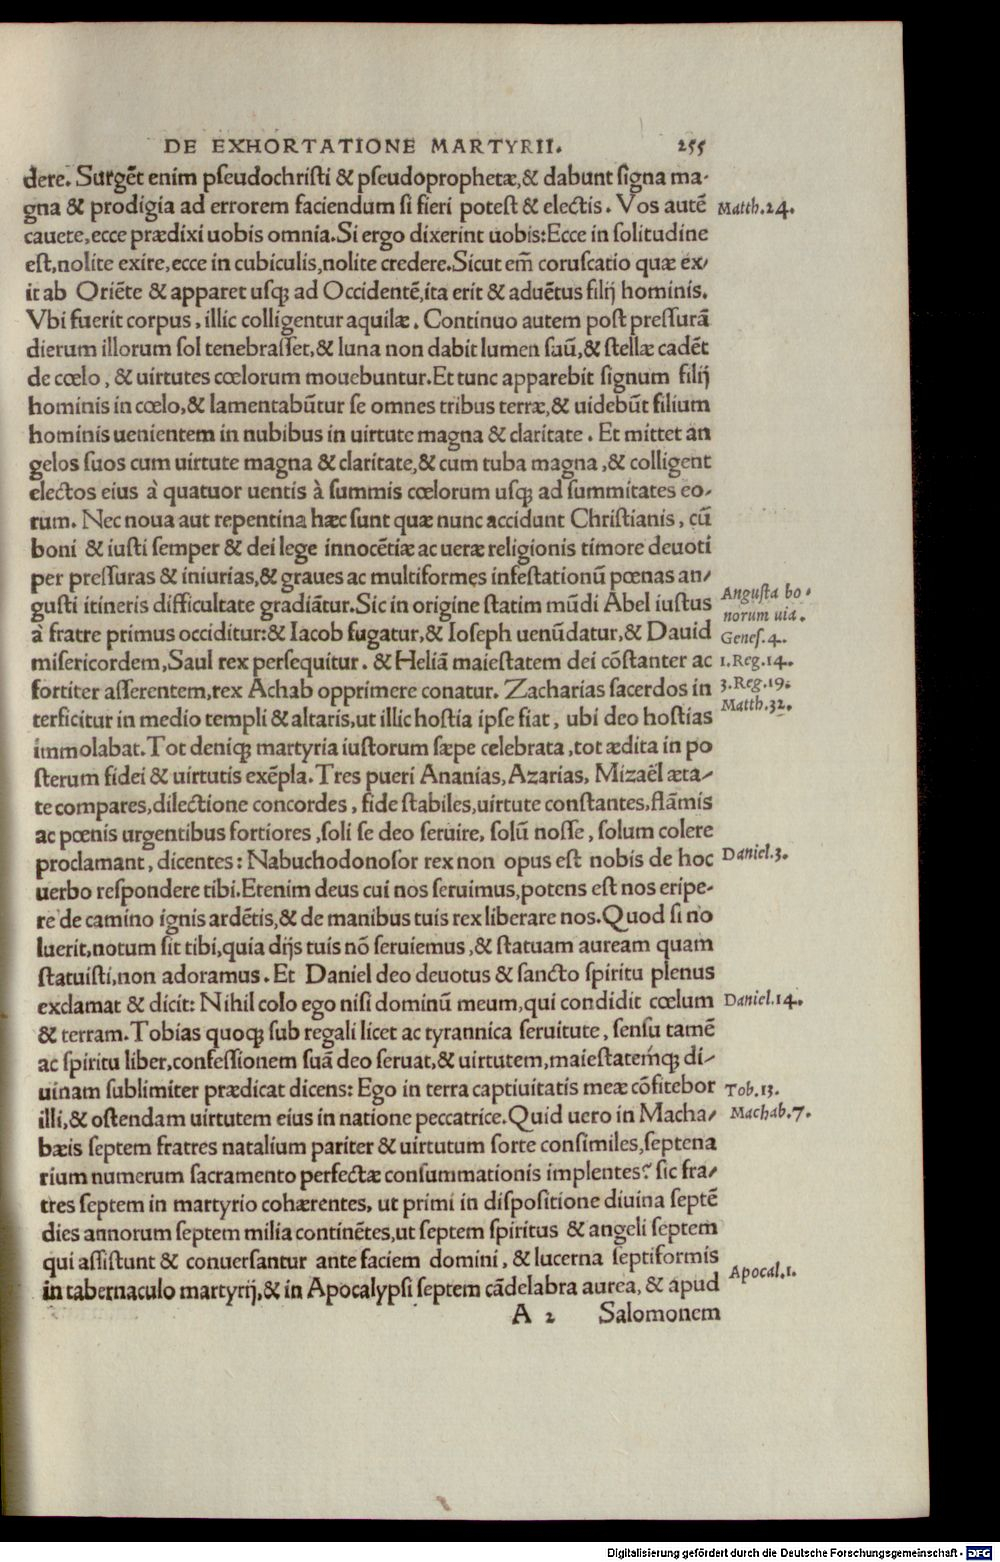 DE EXHORTATIONE MARTYRII. 255
dere. Surgẽt enim pſeudochriſti & pſeudoprophetæ,& dabunt ſigna ma-
gna & prodigia ad errorem faciendum ſi fieri poteſt & electis. Vos autẽ
Matth.24.
cauete,ecce prædixi uobis omnia.Si ergo dixerint uobis:Ecce in ſolitudine
eſt,nolite exire,ecce in cubiculis,nolite credere.Sicut em̃ coruſcatio quæ ex/
it ab Oriẽte & apparet uſqꝫ ad Occidentẽ,ita erit & aduẽtus filij hominis.
Vbi fuerit corpus, illic colligentur aquilæ. Continuo autem poſt preſſurã
dierum illorum ſol tenebraſſet,& luna non dabit lumen ſuũ,& ſtellæ cadẽt
de cœlo, & uirtutes cœlorum mouebuntur.Et tunc apparebit ſignum filij
hominis in cœlo,& lamentabũtur ſe omnes tribus terræ,& uidebũt filium
hominis uenientem in nubibus in uirtute magna & claritate. Et mittet an
gelos ſuos cum uirtute magna & claritate,& cum tuba magna,& colligent
electos eius à quatuor uentis à ſummis cœlorum uſqꝫ ad ſummitates eo-
rum. Nec noua aut repentina hæc ſunt quæ nunc accidunt Chriſtianis, cũ
boni & iuſti ſemper & dei lege innocẽtiæ ac ueræ religionis timore deuoti
per preſſuras & iniurias,& graues ac multiformes infeſtationũ pœnas an/
Anguſta bo-
guſti itineris difficultate gradiãtur.Sic in origine ſtatim mũdi Abel iuſtus
norum uia.
à fratre primus occiditur:& Iacob fugatur,& Ioſeph uenũdatur,& Dauid
Geneſ.4.
miſericordem,Saul rex perſequitur. & Heliã maieſtatem dei cõſtanter ac
1.Reg.14.
fortiter aſſerentem,rex Achab opprimere conatur. Zacharias ſacerdos in
3.Reg.19.
terficitur in medio templi & altaris,ut illic hoſtia ipſe fiat, ubi deo hoſtias
Matth.32.
immolabat.Tot deniqꝫ martyria iuſtorum ſæpe celebrata,tot ædita in po
ſterum fidei & uirtutis exẽpla.Tres pueri Ananias,Azarias, Mizaël æta/
te compares,dilectione concordes, fide ſtabiles,uirtute conſtantes,flãmis
ac pœnis urgentibus fortiores,ſoli ſe deo ſeruire, ſolũ noſſe, ſolum colere
proclamant, dicentes: Nabuchodonoſor rex non opus eſt nobis de hoc
Daniel.3.
uerbo reſpondere tibi.Etenim deus cui nos ſeruimus,potens eſt nos eripe-
re de camino ignis ardẽtis,& de manibus tuis rex liberare nos.Quod ſi no
luerit,notum ſit tibi,quia dijs tuis nõ ſeruiemus,& ſtatuam auream quam
ſtatuiſti,non adoramus. Et Daniel deo deuotus & ſancto ſpiritu plenus
exclamat & dicit: Nihil colo ego niſi dominũ meum,qui condidit cœlum
Daniel.14.
& terram.Tobias quoqꝫ ſub regali licet ac tyrannica ſeruitute, ſenſu tamẽ
ac ſpiritu liber,confeſſionem ſuã deo ſeruat,& uirtutem,maieſtatemqꝫ di/
uinam ſublimiter prædicat dicens: Ego in terra captiuitatis meæ cõfitebor
Tob.13.
illi,& oſtendam uirtutem eius in natione peccatrice.Quid uero in Macha/
Machab.7.
bæis ſeptem fratres natalium pariter & uirtutum ſorte conſimiles,ſeptena
rium numerum ſacramento perfectæ conſummationis implentes? ſic fra/
tres ſeptem in martyrio cohærentes, ut primi in diſpoſitione diuina ſeptẽ
dies annorum ſeptem milia continẽtes,ut ſeptem ſpiritus & angeli ſeptem
qui aſſiſtunt & conuerſantur ante faciem domini, & lucerna ſeptiformis
in tabernaculo martyrij,& in Apocalypſi ſeptem cãdelabra aurea, & apud
Apocal.1.
A 2 Salomonem
Digitalisierung gefördert durch die Deutsche Forschungsgemeinschaft - DFG